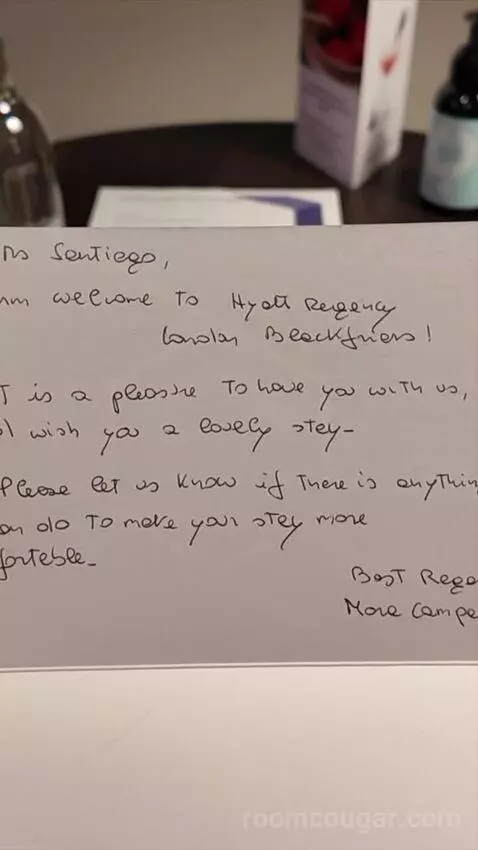 Ms Santiago,
welcome to Hyatt Regency
London Blackfriars!
is a pleasure to have you with us,
wish you a lovely stay-
Please let us know if there is anythin
do to make your stay more
fortable-
Best Rega
Campe
roomcougar.com